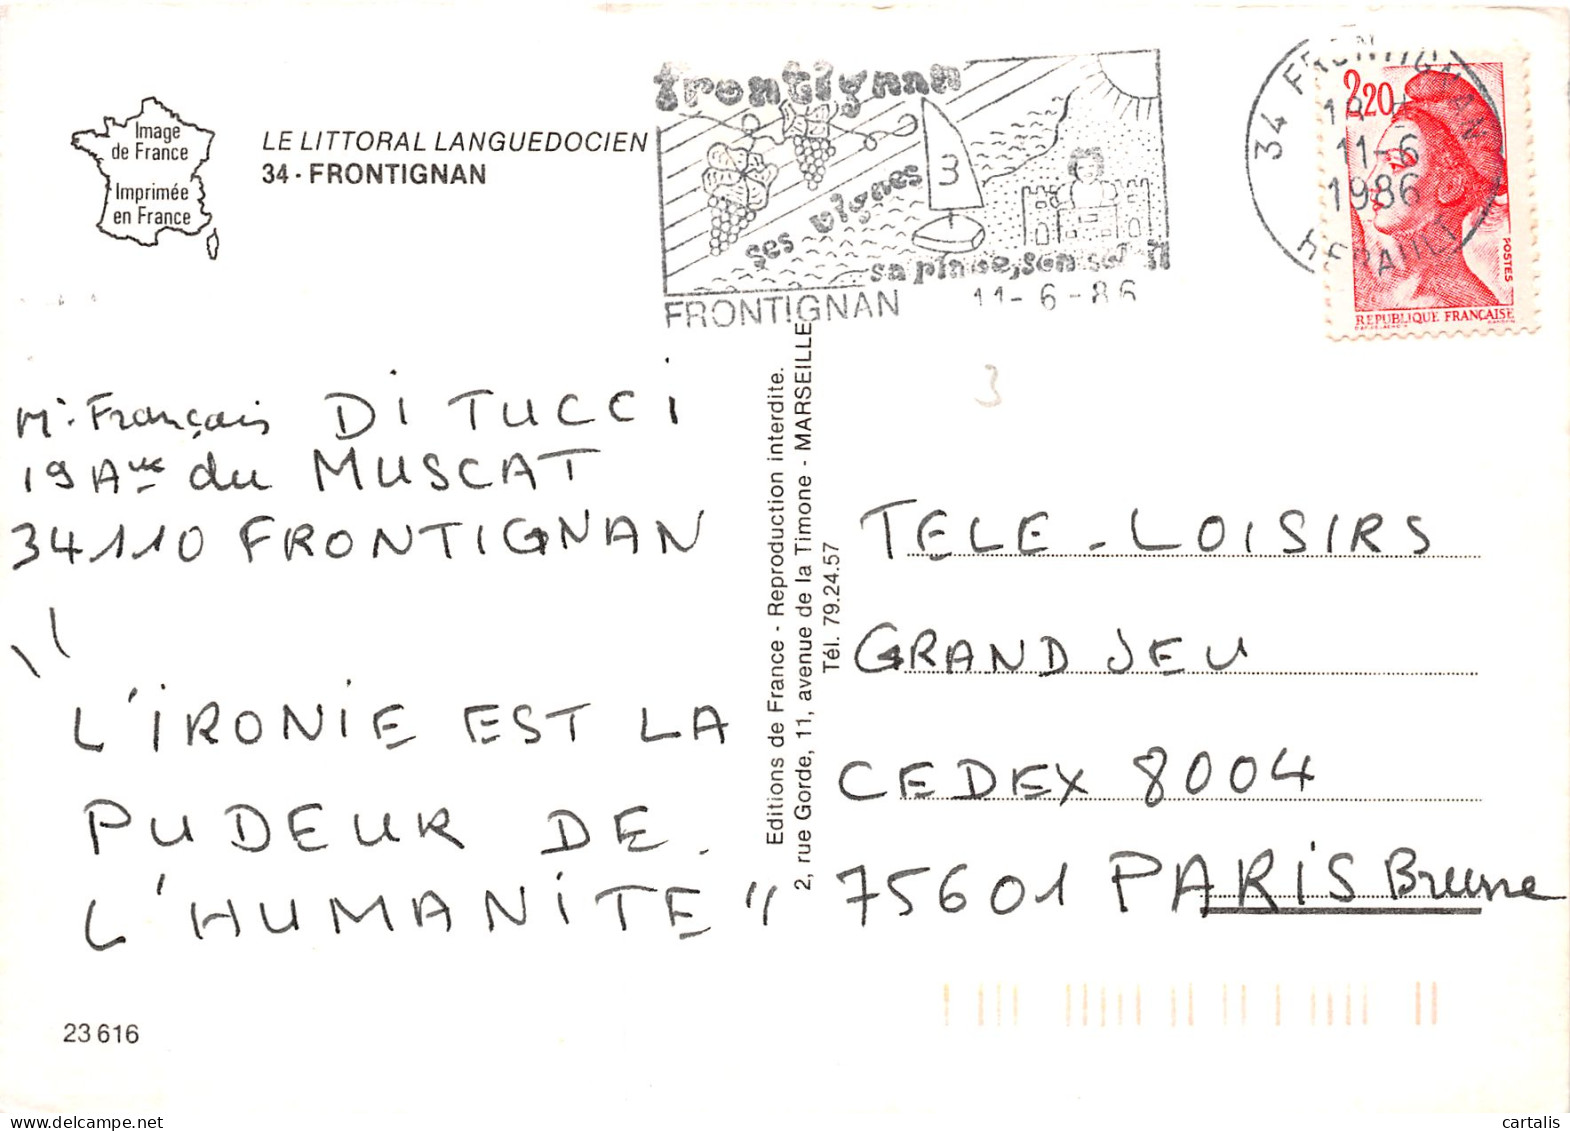 Image
de France
Imprimée
en France
LE LITTORAL LANGUEDOCIEN
34 - FRONTIGNAN
frontignan
ses vignes
3
sa plage, son soleil
FRONTIGNAN 11-6-86
34 FRONTIGNAN
11-6
1986
HERAULT
2,20
POSTES
REPUBLIQUE FRANÇAISE
Mr. Français DI TUCCI
19 Ave du MUSCAT
34110 FRONTIGNAN
"L'IRONIE EST LA
PUDEUR DE
L'HUMANITE"
23 616
Editions de France - Reproduction interdite.
2, rue Gorde, 11, avenue de la Timone - MARSEILLE
Tél. 79.24.57
3
TELE-LOISIRS
GRAND JEU
CEDEX 8004
75601 PARIS Brune
cartalis